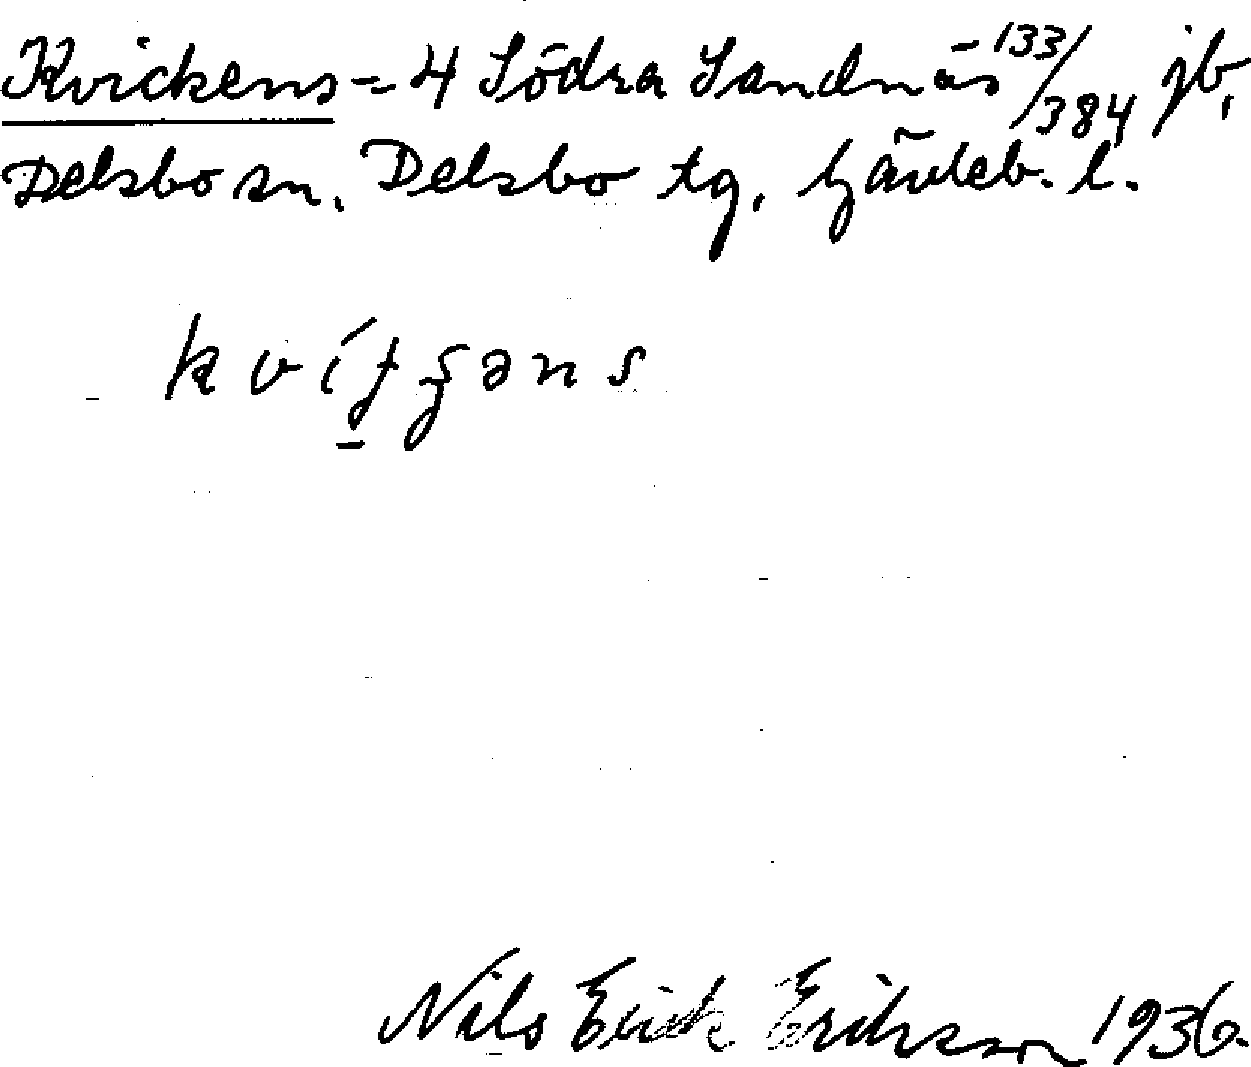 Kvickens = 4 Södra Sandnäs 133/384 jb,
Delsbo sn. Delsbo tg. Gävleb. l.
Nils Erik Eriksson 1936.